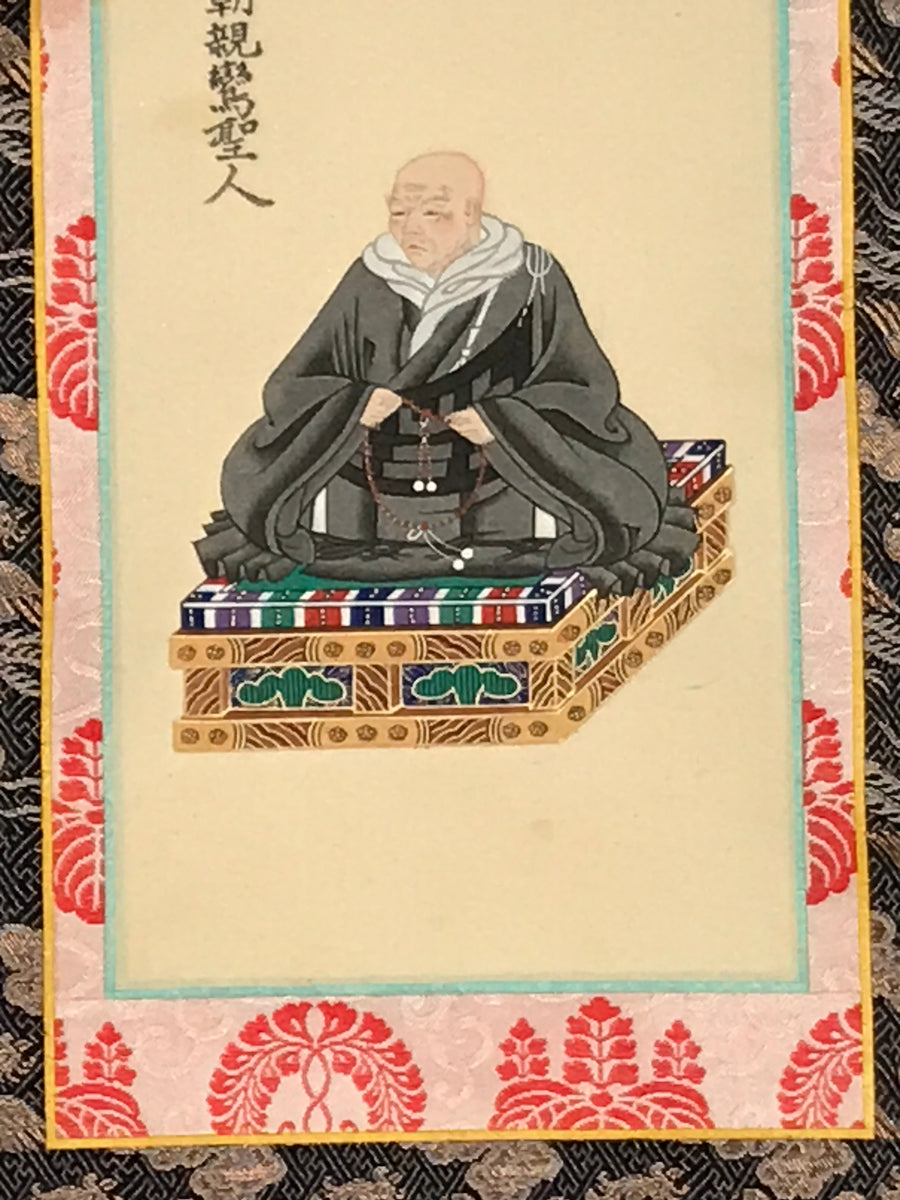 朝親鸞聖人